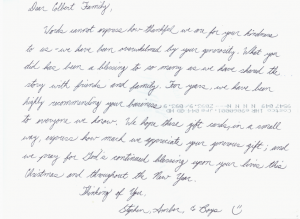 Dear Elbert Family,
Words cannot express how thankful we are for your kindness
to us - we have been overwhelmed by your generosity. What you
did has been a blessing to so many as we have shared the
story with friends and family. For years, we have been
highly recommending your business
to everyone we know. We hope these gift cards, in a small
way, express how much we appreciate your generous gift; and
we pray for God's continued blessing upon your lives this
Christmas and throughout the New Year.
Thinking of You,
Stephen, Amber, & Boys